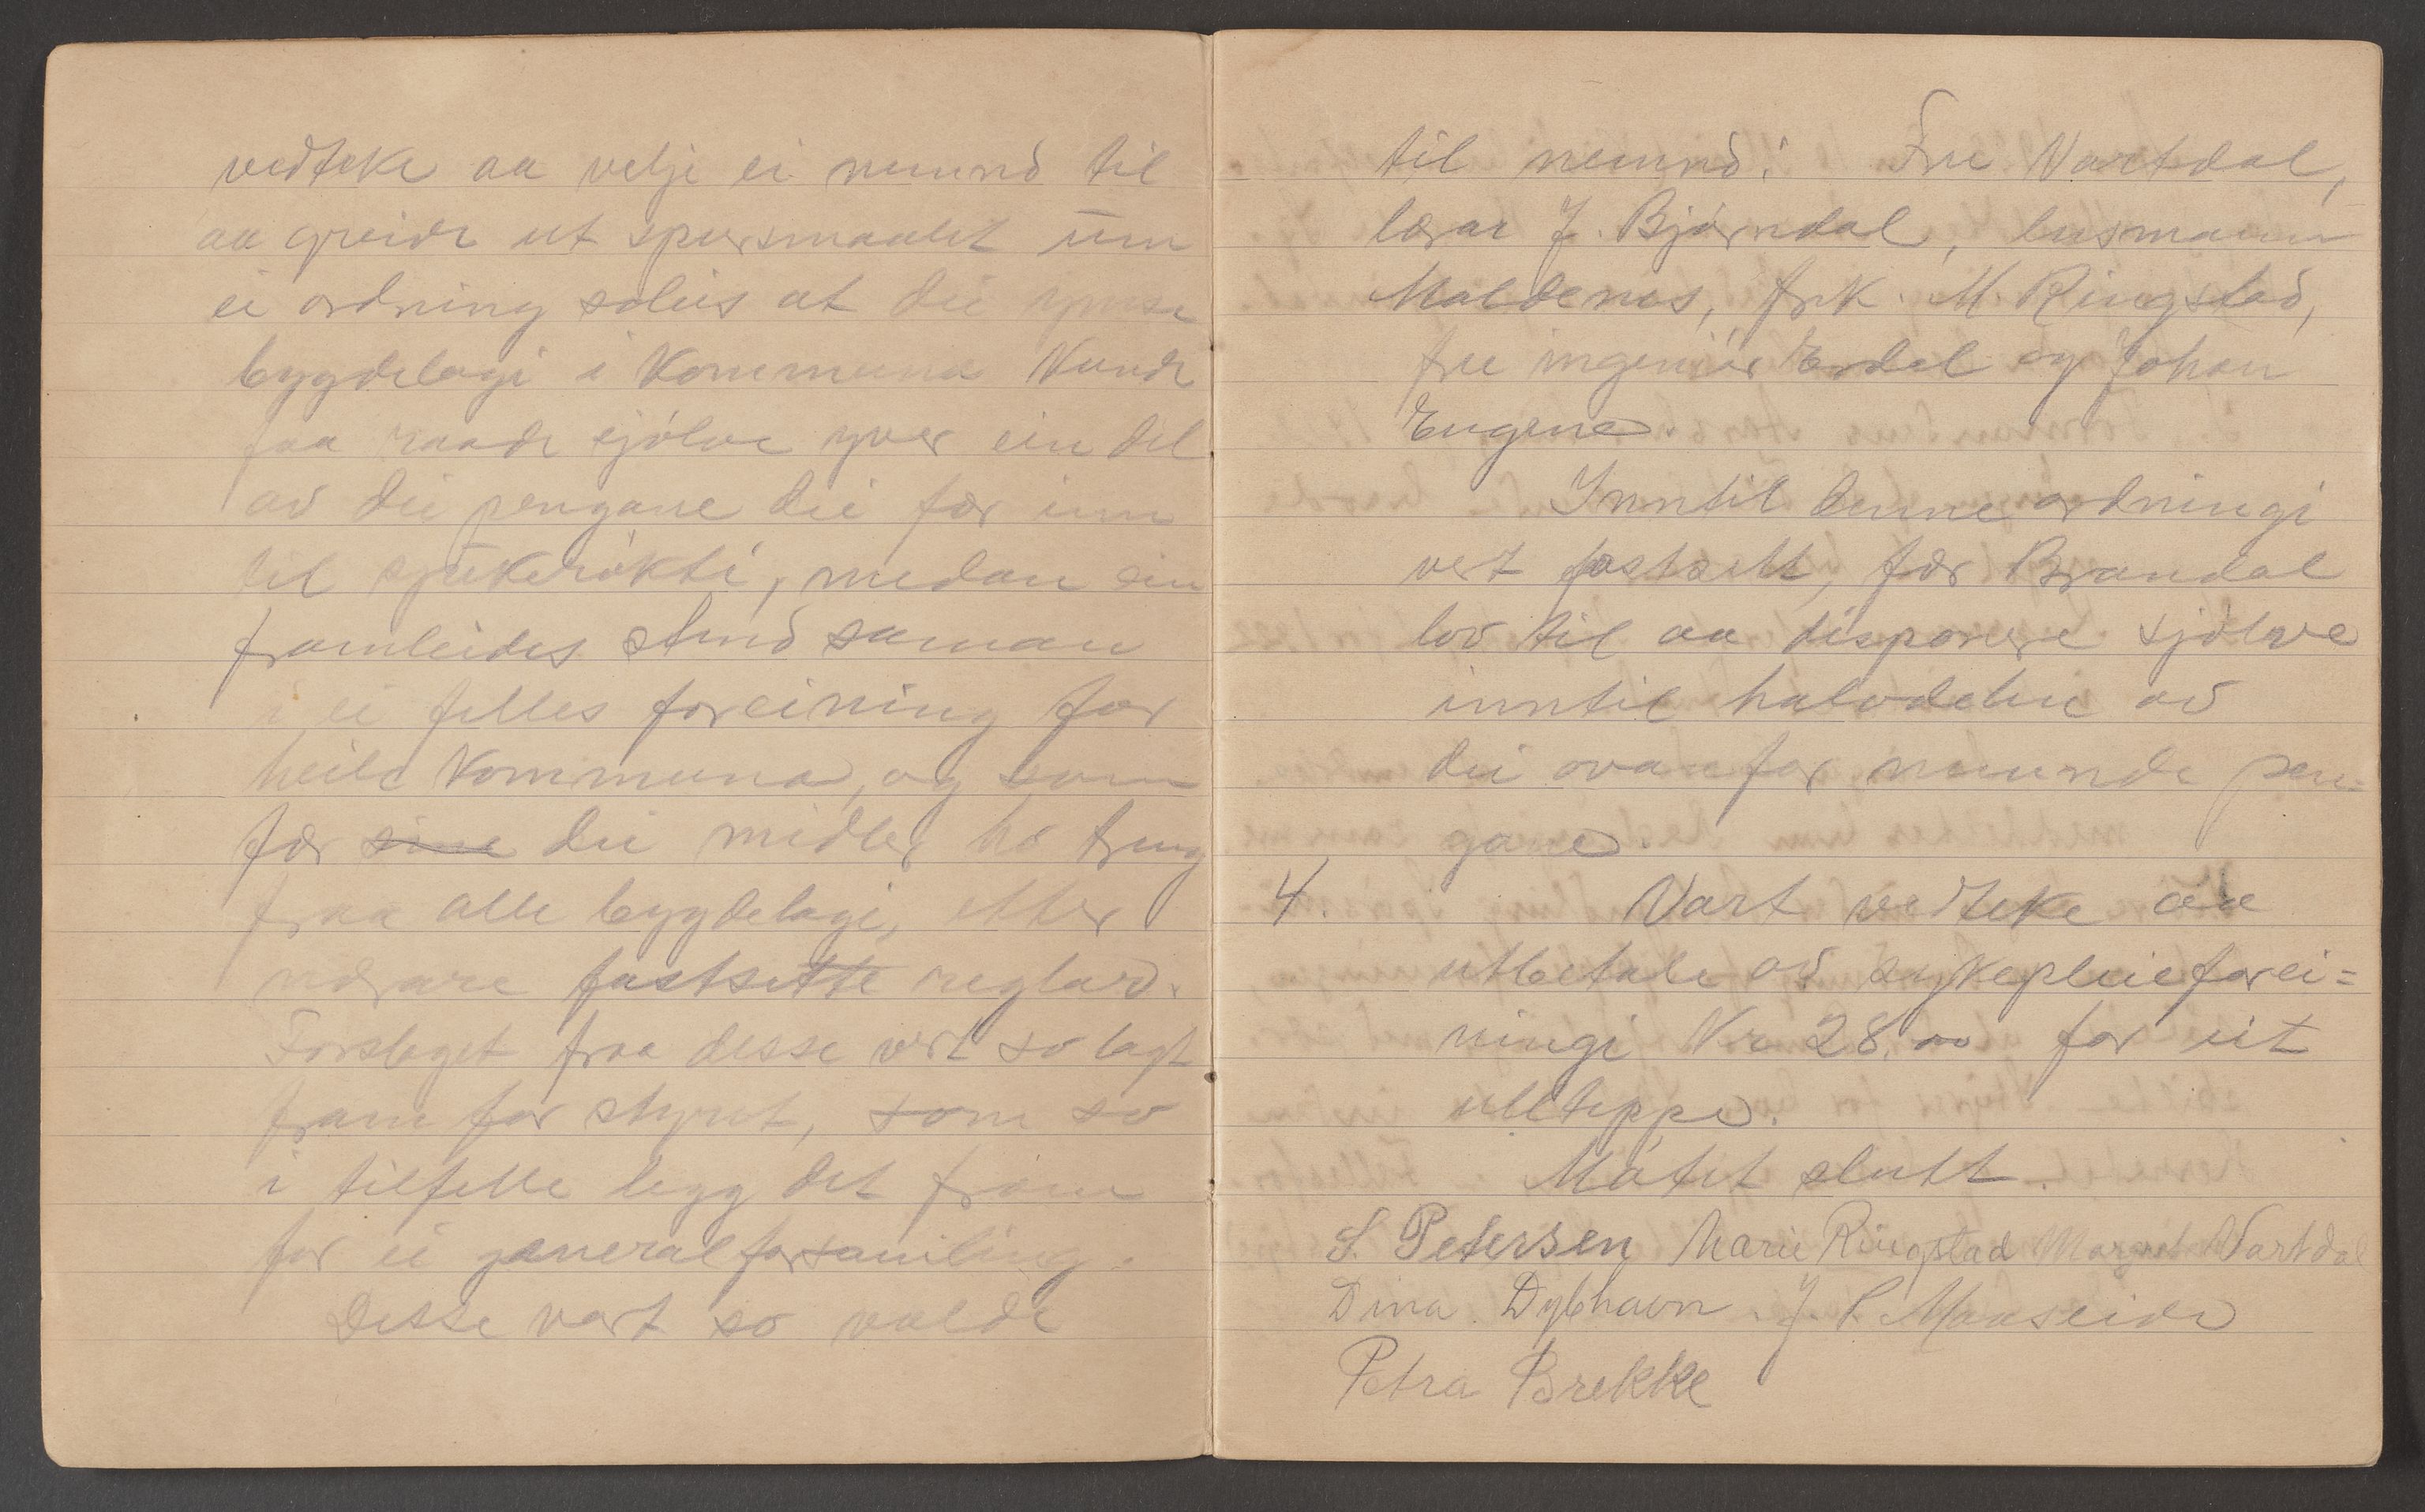 vedteke aa velje ei nemnd til
aa greide ut spursmaalet um
ei ordning soleis at dei ymse
bygdelagi i kommuna kunde
faa raade sjølve yver ein del
av dei pengane dei fær inn
til sjukerøkti, medan ein
framleides stend saman
i ei felles foreining for
heile kommuna, og som
fær sine dei midler ho treng
fraa alle bygdelagi, etter
nærare fastsette reglar.
Forslaget fraa desse vert so lagt
fram for styret, som so
i tilfelle legg det fram
for ei generalforsamling.
Desse vart so valde
til nemnd: Fru Vartdal,
lærar J. Bjørndal, lensmann
Maldenes, frk. M. Ringstad,
fru ingeniør Erdal og Johan
Eugene
Inntil denne ordningi
vert fastsett, fær Brandal
lov til aa disponere sjølve
inntil halvdelen av
dei ovanfor nemnde pen=
gane.
4. Vart vedteke aa
utbetale av sykepleieforei=
ningi Kr 28,00 for eit
ullteppe.
Møtet slutt.
S. Petersen Marie Ringstad Margret Vartdal
Dina Dybhavn. J. P. Maaseide
Petra Brekke